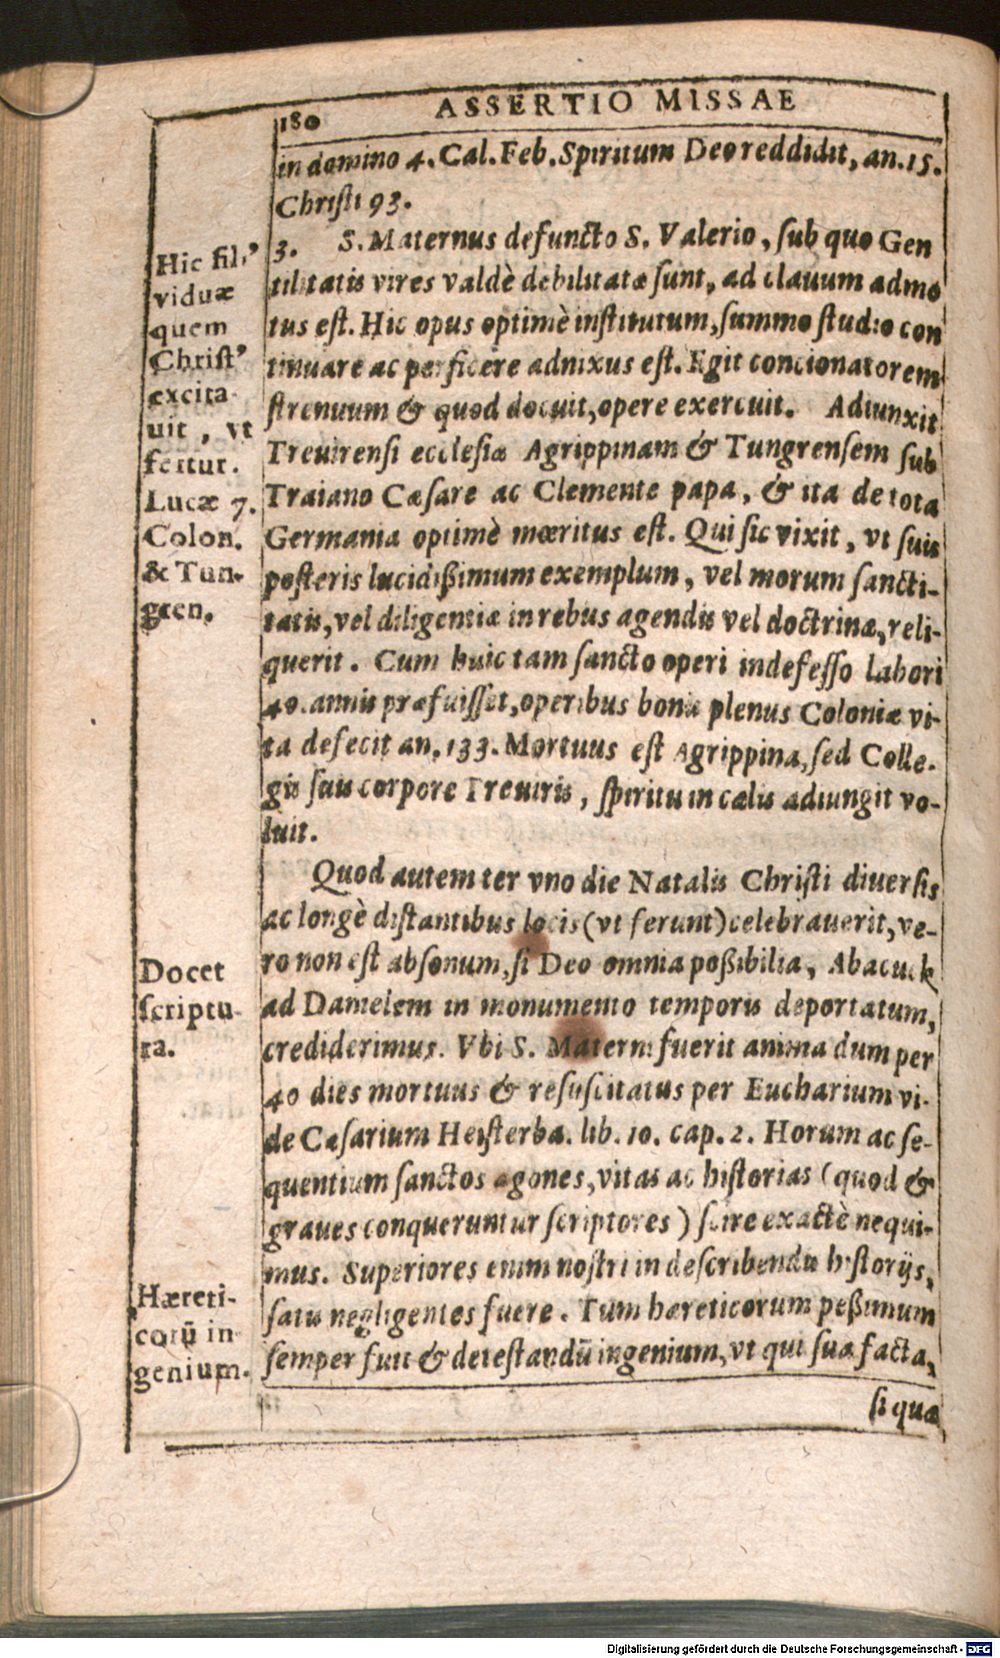 180 ASSERTIO MISSAE
in domino 4. Cal. Feb. Spiritum Deo reddidit, an. 15.
Christi 93.
3. S. Maternus defuncto S. Valerio, sub quo Gen
tilitatis vires valdè debilitatæ sunt, ad clauum admo
tus est. Hic opus optimè institutum, summo studio con
tinuare ac perficere adnixus est. Egit concionatorem
strenuum & quod docuit, opere exercuit. Adiunxit
Treuirensi ecclesiæ Agrippinam & Tungrensem sub
Traiano Cæsare ac Clemente papa, & ita de tota
Germania optimè mœritus est. Qui sic vixit, vt suis
posteris lucidißimum exemplum, vel morum sancti-
tatis, vel diligentiæ in rebus agendis vel doctrinæ, reli-
querit. Cum huic tam sancto operi indefesso labori
40. annis præfuisset, operibus bonis plenus Coloniæ vi-
ta defecit an. 133. Mortuus est Agrippina, sed Colle-
gis suis corpore Treuiris, spiritu in cælis adiungit vo-
luit.
Quod autem ter vno die Natalis Christi diuersis
ac longè distantibus locis (vt ferunt) celebrauerit, ve-
ro non est absonum, si Deo omnia poßibilia, Abacuck
ad Danielem in monumento temporis deportatum,
crediderimus. Vbi S. Materni fuerit anima dum per
40 dies mortuus & resuscitatus per Eucharium vi-
de Cæsarium Heisterba. lib. 10. cap. 2. Horum ac se-
quentium sanctos agones, vitas ac historias (quod &
graues conqueruntur scriptores) scire exactè nequi-
mus. Superiores enim nostri in describendis historijs,
satis negligentes fuere. Tum hæreticorum peßimum
semper fuit & detestandū ingenium, vt qui sua facta,
si qua
Hic fili⁹
viduæ
quem
Christ⁹
excita
uit, vt
fertur.
Lucæ 7.
Colon.
& Tun-
gren.
Docet
scriptu-
ra.
Hæreti-
corū in-
genium.
Digitalisierung gefördert durch die Deutsche Forschungsgemeinschaft - DFG